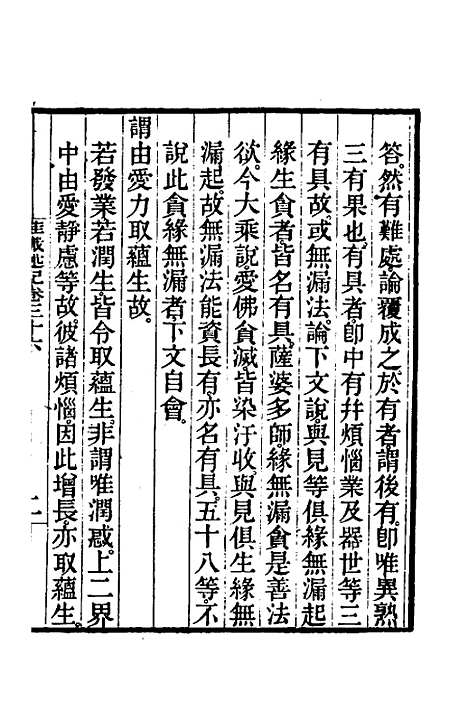 答。然有難處。論覆成之。於有者。謂後有。即唯異熟
三有果也。有具者。即中有并煩惱業及器世等。三
有具故。或無漏法。論下文說。與見等俱緣無漏起
緣生貪者。皆名有具。薩婆多師。緣無漏貪是善法
欲。今大乘說愛佛貪滅皆染汙收。與見俱生緣無
漏起。故無漏法能資長有。亦名有具。五十八等。不
說此貪緣無漏者。下文自會。
謂由愛力取蘊生故。
若發業若潤生。皆令取蘊生。非謂唯潤惑。上二界
中由愛靜慮等故。彼諸煩惱。因此增長。亦取蘊生。
述記卷三十六